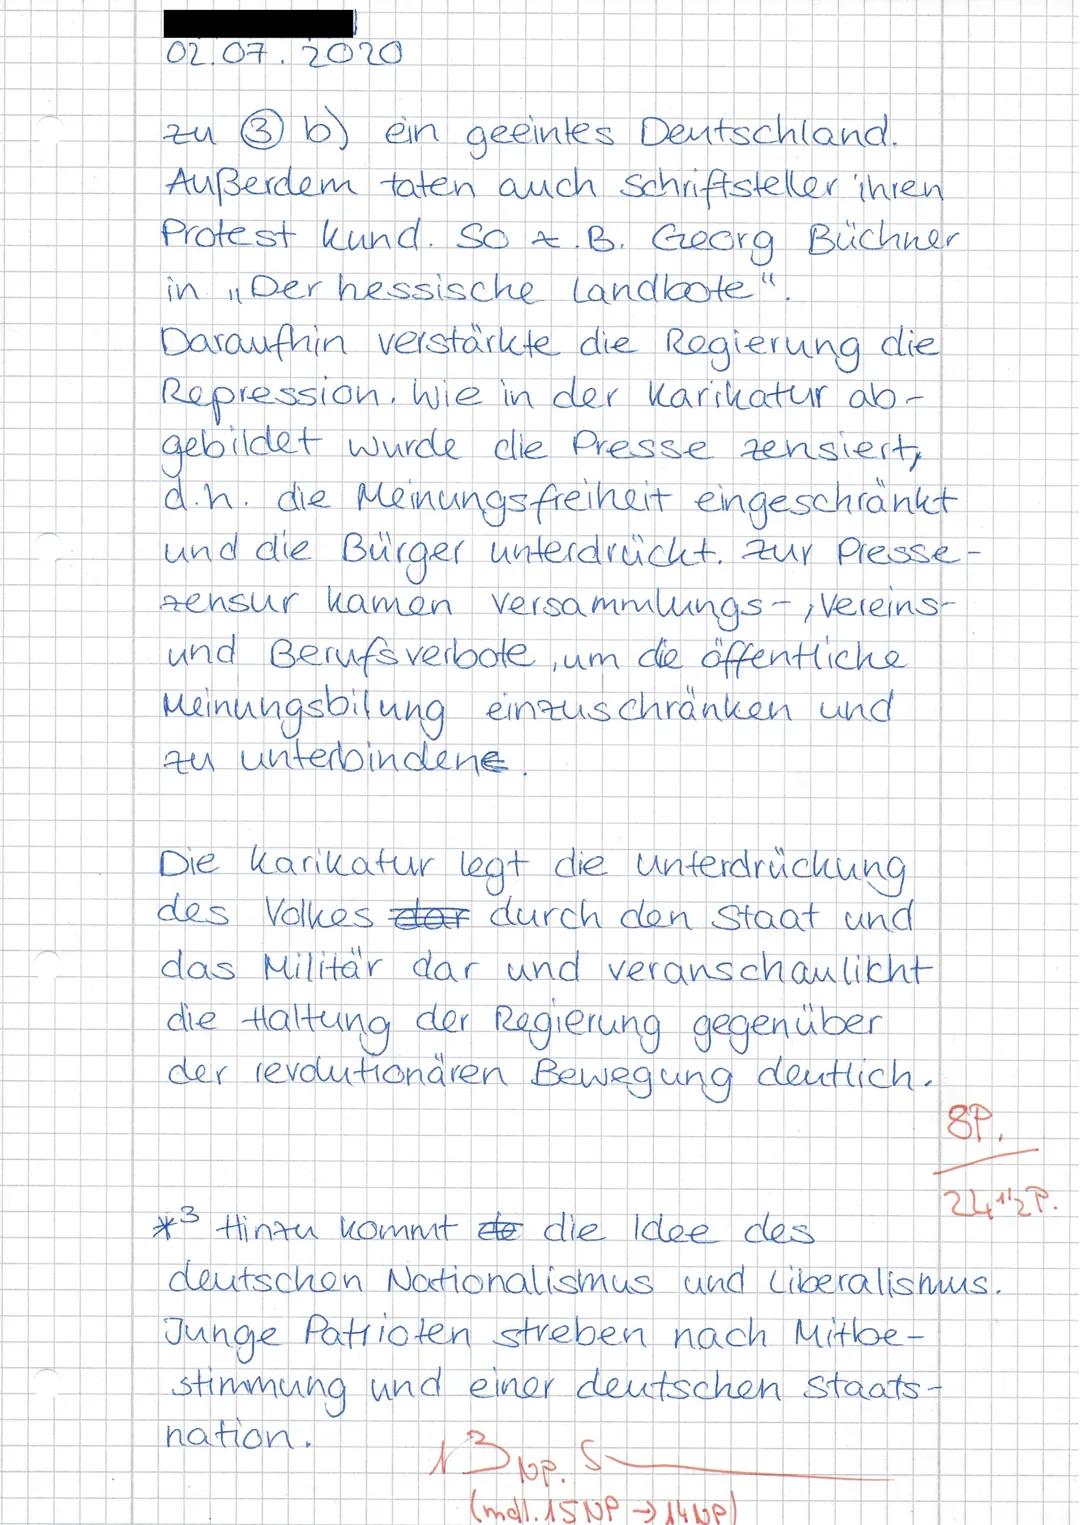 02.07.2020
zu ③ b) ein geeintes Deutschland.
Außerdem taten auch Schriftsteller ihren
Protest kund. So z.B. Georg Büchner
in „Der hessische Landbote".
Daraufhin verstärkte die Regierung die
Repression. Wie in der Karikatur ab-
gebildet wurde die Presse zensiert,
d.h. die Meinungsfreiheit eingeschränkt
und die Bürger unterdrückt. Zur Presse-
zensur kamen Versammlungs-, Vereins-
und Berufsverbote, um die öffentliche
Meinungsbilung einzuschränken und
zu unterbinden.
Die Karikatur legt die Unterdrückung
des Volkes dar durch den Staat und
das Militär dar und veranschaulicht
die Haltung der Regierung gegenüber
der revolutionären Bewegung deutlich.
8P.
24 1/2P.
*3 Hinzu kommt die Idee des
deutschen Nationalismus und Liberalismus.
Junge Patrioten streben nach Mitbe-
stimmung und einer deutschen Staats-
nation.
13 NP.
(mdl. 15 NP → 14 NP)